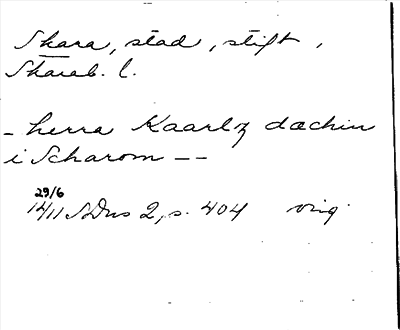 Skara, stad, stift,
Skarab. l.
- herra Kaarlz dæchin
i Scharom --
29/6
1411 SDns 2, s. 404 orig